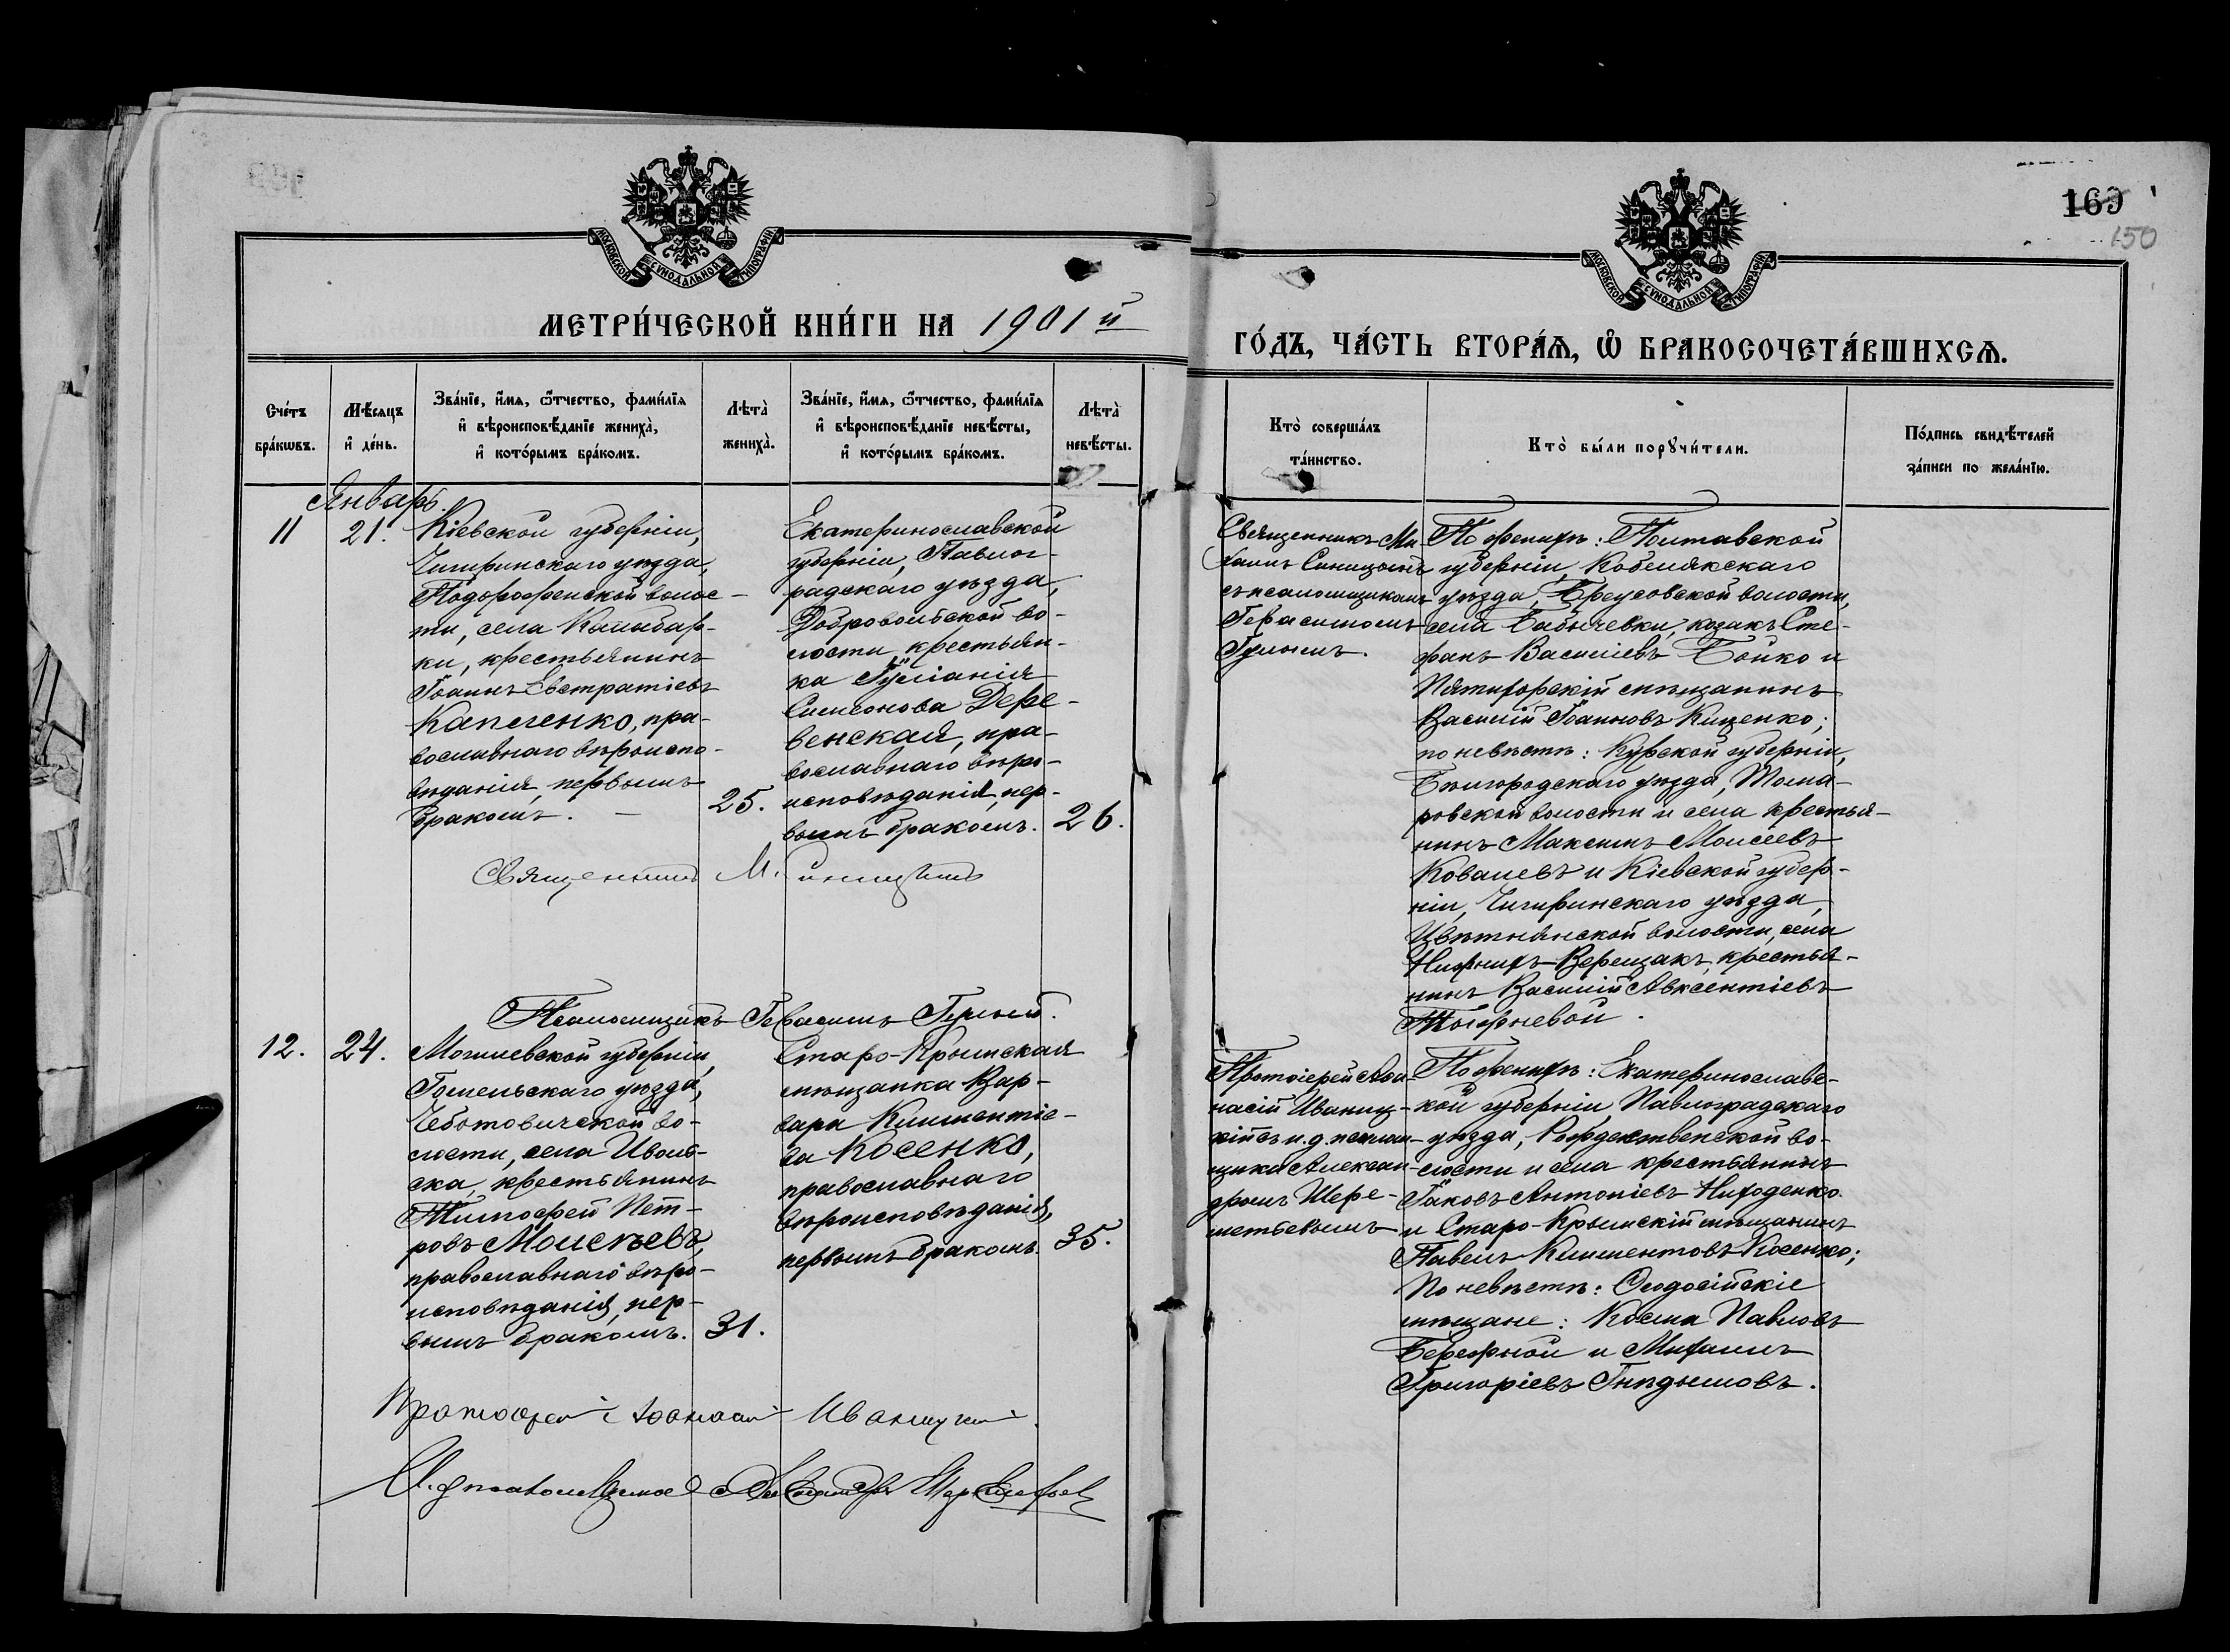 169
150
МОСКОВСКОЙ СѴНОДАЛЬНОЙ ТИПОГРАФІИ
МОСКОВСКОЙ СѴНОДАЛЬНОЙ ТИПОГРАФІИ
МЕТРИ́ЧЕСКОЙ КНИ́ГИ НА 1901 й
ГО́ДЪ, ЧА́СТЬ ВТОРА́Ѧ, Ѡ БРАКОСОЧЕТА́ВШИХСѦ.
Сче́тъ
бра́кѡвъ.
Мѣ́сяцъ
и҆ де́нь.
Зва́нїе, и҆́мя, ѻ҆́тчество, фами́лїя
и҆ вѣроисповѣ́данїе жениха̀,
и҆ кото́рымъ бра́комъ.
Лѣта̀
жениха̀.
Зва́нїе, и҆́мя, ѻ҆́тчество, фами́лїя
и҆ вѣроисповѣ́данїе невѣ́сты,
и҆ кото́рымъ бра́комъ.
Лѣта̀
невѣ́сты.
Кто̀ соверша́лъ
та́инство.
Кто̀ бы́ли порꙋчи́тели.
По́дпись свидѣ́телей
за́писи по жела́нїю.
Январь.
11
21.
Кіевской губерніи,
Чигиринскаго уѣзда,
Подороженской волос-
ти, села Калибар-
ки, крестьянинъ
Іоаннъ Евстратіевъ
Капленко, пра-
вославнаго вѣроиспо-
вѣданія, первымъ
бракомъ. —
25.
Екатеринославской
губерніи, Павлог-
радскаго уѣзда,
Добровольской во-
лости, крестьян-
ка Іуліанія
Симеонова Дере-
венская, пра-
вославнаго вѣро-
исповѣданія, пер-
вымъ бракомъ.
26.
Священникъ Ми-
хаилъ Синицынъ
съ псаломщикомъ
Герасимомъ
Гулымъ.
По женихѣ: Полтавской
губерніи, Кобелякскаго
уѣзда, Бреусовской волости,
села Бабичевки, козакъ Сте-
фанъ Василіевъ Бойко и
Пятигорскій мѣщанинъ
Василій Іоанновъ Кищенко;
по невѣстѣ: Курской губерніи,
Бѣлгородскаго уѣзда, Тома-
ровской волости и села крестья-
нинъ Максимъ Моисеевъ
Ковалевъ и Кіевской губер-
ніи, Чигиринскаго уѣзда,
Цвѣтнянской волости, села
Нижнихъ-Верещакъ, крестья-
нинъ Василій Авксентіевъ
Священникъ М. Синицынъ
Псаломщикъ Герасимъ Гулый.
12.
24.
Могилевской губерніи,
Гомельскаго уѣзда,
Чеботовичской во-
лости, села Иволь-
ска, крестьянинъ
Тимофей Пет-
ровъ Моисеевъ,
православнаго вѣро-
исповѣданія, пер-
вымъ бракомъ.
31.
Старо-Крымская
мѣщанка Вар-
вара Климентіе-
ва Косенко,
православнаго
вѣроисповѣданія,
первымъ бракомъ.
35.
Протоіерей Афа-
насій Иваниц-
кій съ и. д. псалом-
щика Алексан-
дромъ Шере-
метьевымъ
По женихѣ: Екатеринославс-
кой губерніи Павлоградскаго
уѣзда, Рождественской во-
лости и села крестьянинъ
Іаковъ Антоніевъ Ниходенко
и Старо-Крымскій мѣщанинъ
Павелъ Климентовъ Косенко;
По невѣстѣ: Ѳеодосійскіе
мѣщане: Косма Павловъ
Бережной и Михаилъ
Григоріевъ Гнѣдышовъ.
Протоіерей Аѳанасій Иваницкій.
И. д. псаломщика Александръ Шереметьевъ